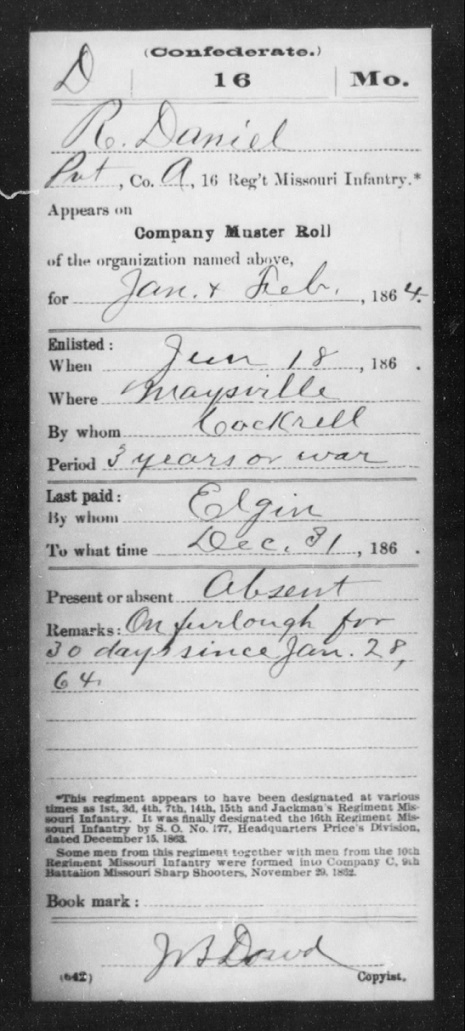 (Confederate.)
D 16 Mo.
R. Daniel
Pvt, Co. A, 16 Reg't Missouri Infantry.*
Appears on
Company Muster Roll
of the organization named above,
for Jan. & Feb., 1864.
Enlisted:
When Jun 18, 186 .
Where Maysville
By whom Cockrell
Period 3 years or war
Last paid:
By whom Elgin
To what time Dec. 31, 186 .
Present or absent Absent
Remarks: On furlough for
30 days since Jan. 28,
64.
*This regiment appears to have been designated at various
times as 1st, 3d, 4th, 7th, 14th, 15th and Jackman's Regiment Mis-
souri Infantry. It was finally designated the 16th Regiment Mis-
souri Infantry by S. O. No. 177, Headquarters Price's Division,
dated December 15, 1863.
Some men from this regiment together with men from the 10th
Regiment Missouri Infantry were formed into Company C, 9th
Battalion Missouri Sharp Shooters, November 29, 1862.
Book mark:
Dowd
(642) Copyist.